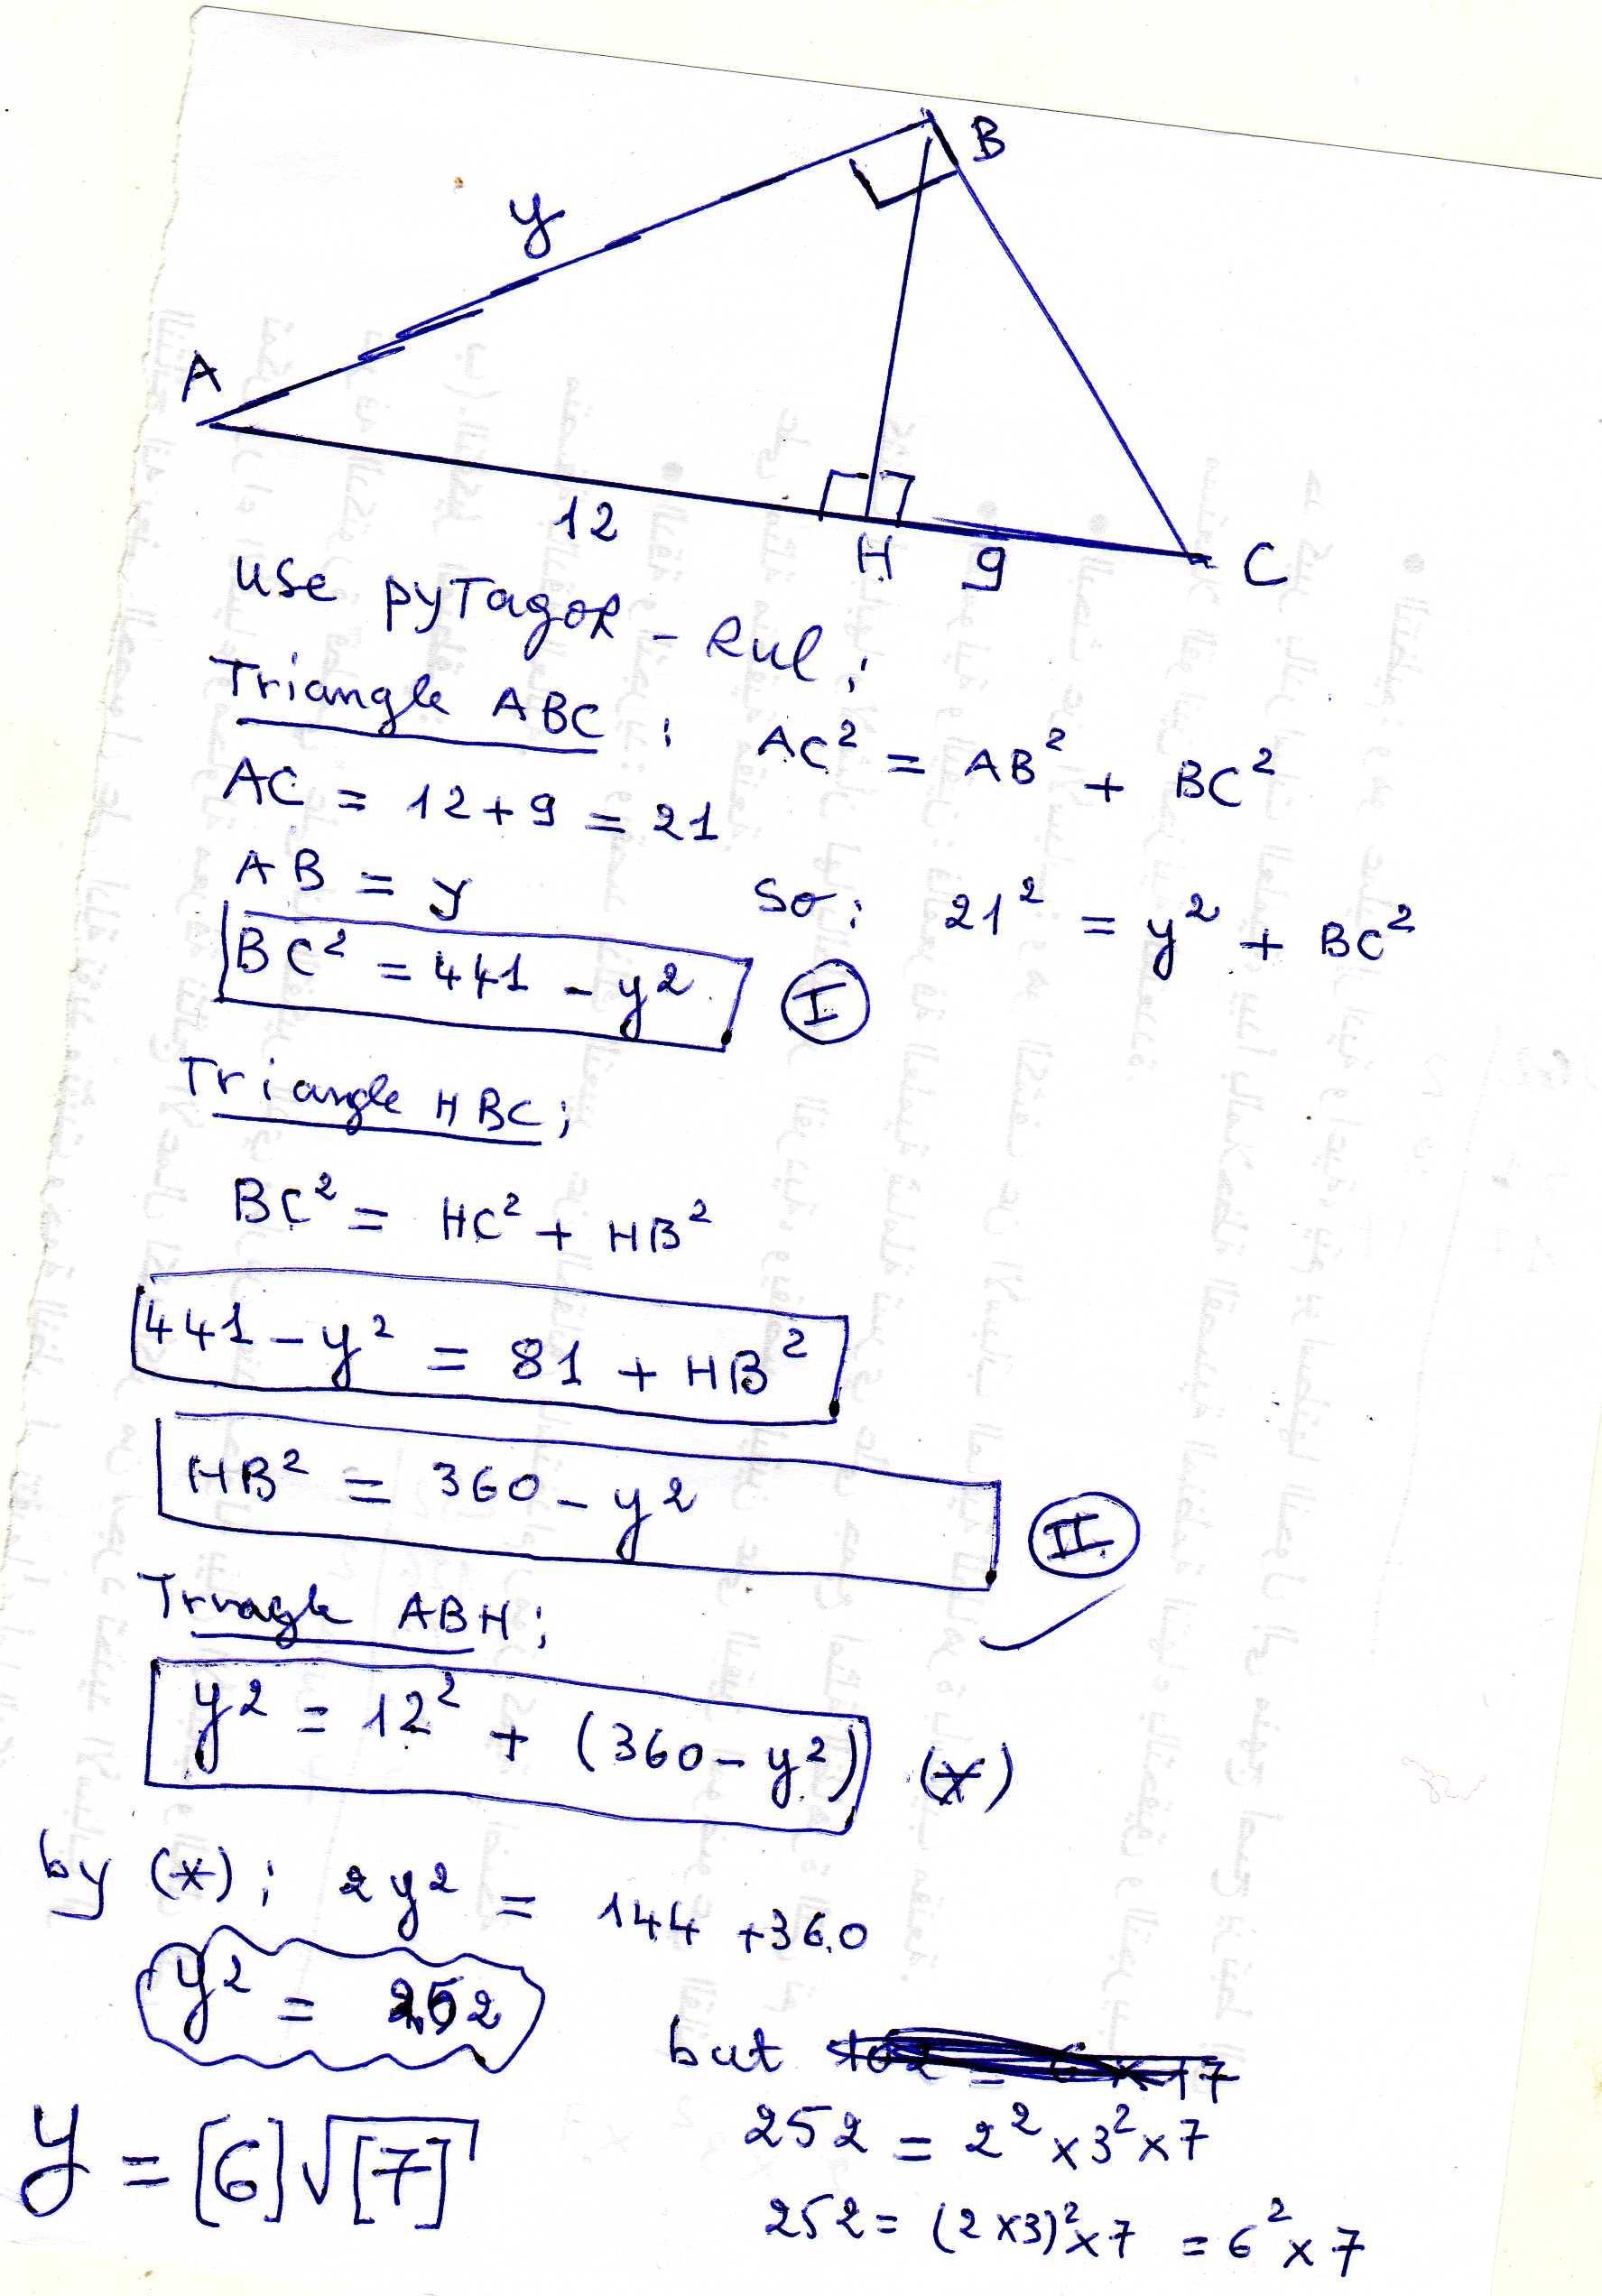 B
y
A
12
H 9 C
Use pyTagoR - Rul;
Triangle ABC : AC² = AB² + BC²
AC = 12 + 9 = 21
AB = y So: 21² = y² + BC²
BC² = 441 - y² I
Triangle HBC;
BC² = HC² + HB²
441 - y² = 81 + HB²
HB² = 360 - y² II
Trvagle ABH;
y² = 12² + (360 - y²) (*)
by (*); 2y² = 144 + 360
y² = 252
but
252 = 2² x 3² x 7
y = [6]√[7]
252 = (2 x 3)² x 7 = 6² x 7